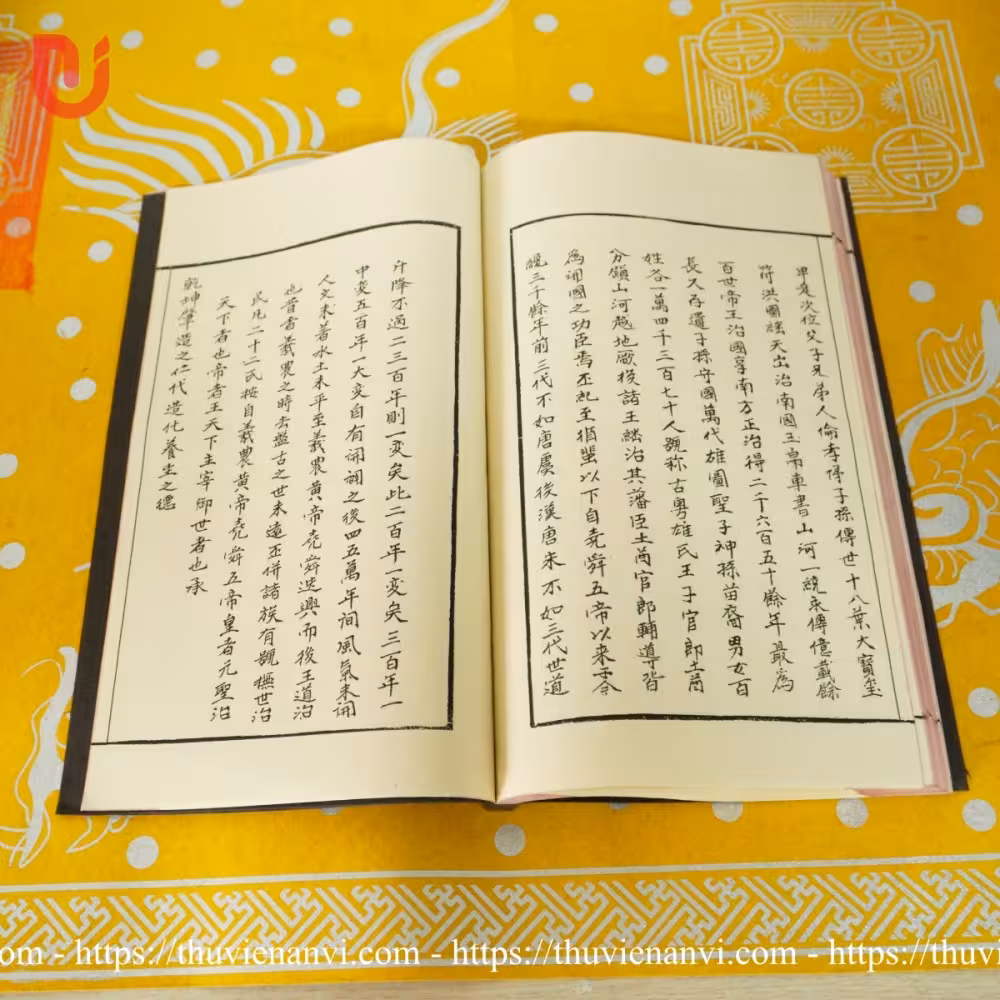 卑是次位父子兄弟人倫李停子孫傳世十八葉大寶璽
符洪圖継天出治南國玉帛車書山河一統永傳億載餘
百世帝王治國享南方正治得二千六百五十餘年最為
長久存遺子孫守國萬代雄圖聖子神孫苗裔男女百
姓各一萬四千三百七十人號称古粤雄氏王子官郎土酋
分鎮山河越地厥後諸王繼治其藩臣土酋官郎輔導皆
為開國之功臣焉丕紀至獲麟以下自堯舜五帝以來至今
三千餘年前三代不如唐虞後漢唐宋不如三代世道
汙降不過二三百年則一变矣此二百年一变矣三百年一
中变五百年一大变自有開闢之後四五萬年间風氣未開
人文未著水土未平至羲農黄帝堯舜迭興而後王道治
也昔者羲農之時去盤古之世未遠丕併諸族有號撫世治
民凡二十二氏按自羲農黄帝堯舜五帝皇者元聖治
天下者也帝者王天下主宰御世者也承
乾坤肇造之仁代造化養生之德
https://thuvienanvi.com - https://thuvienanvi.com